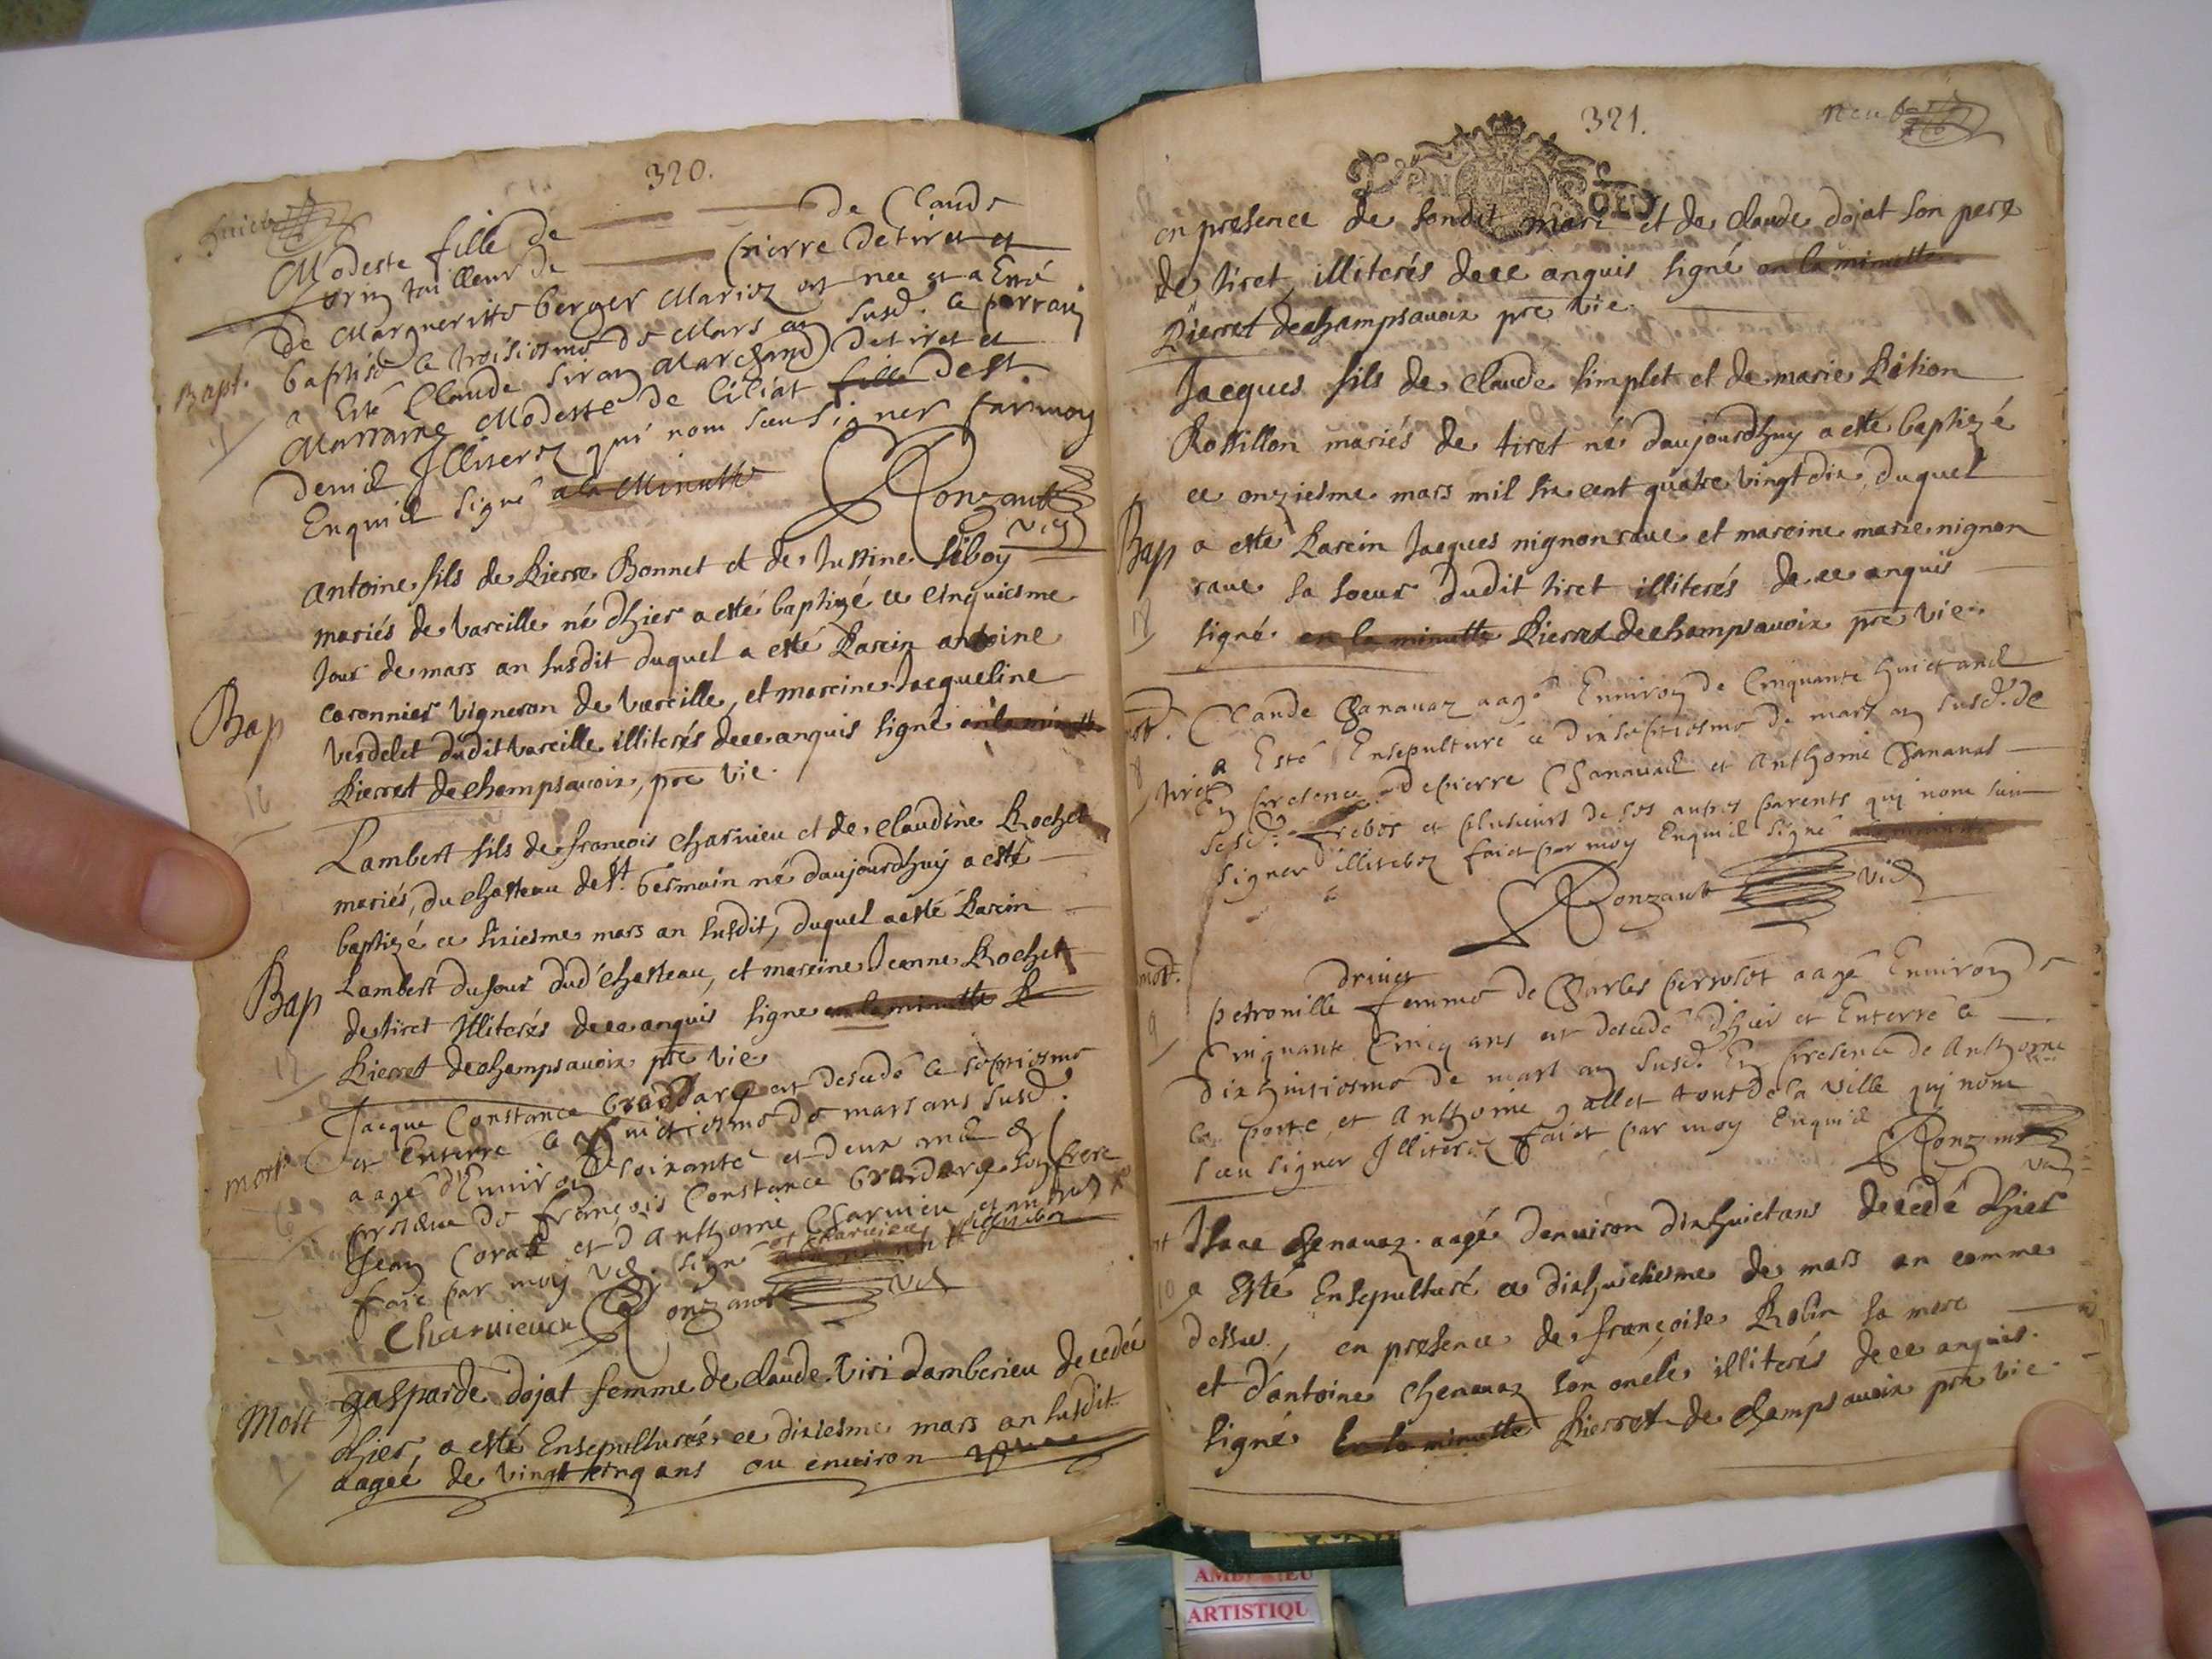 320.
huict
Modeste fille de de Claude
tailleur de pierre de tiret et
de Margueritte berger Mariez est nee et a Esté
Bapt. baptisé le troisiesme de Mars an susd. le parrain
a Esté Claude siran Marchand de tiret et
Marraine Modeste de liliat fille de St
denid Illiterez qui nom sceu signer par moy
Enquid signé a la Minutte
Ronzaut
vic
antoine fils de Pierre Bonnet et de Justine siboy
mariés de vareille né d'hier a esté baptizé ce cinquiesme
Jour de mars an susdit duquel a esté Parein antoine
Bap caronnier vigneron de vareille, et mareine Jacqueline
verdelet dudit vareille illiterés de ce anquis signé en la minutte
16 Pierret dechampsavoix, pre vic.
Lambert fils de françois charuieu et de claudine Rochet
mariés, du chasteau de St. Germain né daujourdhuy a esté
baptizé ce sixiesme mars an susdit, duquel a esté Parein
Bap Lambert dufour dud chasteau, et mareine Jeanne Rochet
de tiret Illiterés de ce anquis signe en la minutte P
17 Pierret dechampsavoix pre vic
Jacque Constance est decedé le septiesme
mort et Enterré le huictiesme de mars ans susd.
aagé d'Enuiron soixante et deux ans
presence de françois Constance son frere
Jean Corait et d'Anthoine Charuieu et autres
faie par moy vic. signé
Charuieux Ronzaut vic
Mort gasparde dojat femme de claude viri damberieu decedée
dhier, a esté Ensepulturée ce dixiesme mars an susdit
aagée de vingt cinq ans ou enuiron
321.
neuf
en presence de sondit mari et de claude dojat son pere
de tiret, illiterés de ce anquis signé en la minutte
Pierret dechampsavoix pre vic.
Jacques fils de claude simplet et de marie Pétion
Rossillon mariés de tiret né daujourdhuy a esté baptizé
ce onziesme mars mil six cent quatre vingt dix, duquel
Bap a esté Parein Jacques nignon raue et mareine marie nignon
raue sa soeur dudit tiret illiterés de ce anquis
signé en la minutte Pierret dechampsavoix pre vic.
Claude Chanauaz aagé Enuiron de Cinquante huict ans
a Esté Ensepulturé ce dixseptiesme de mars an susd. de
tiret En presence de pierre Chanauad et Anthoine Chanauas
sesd. et plusieurs de ses autres parents qui nom sceu
signer faict par moy Enquid signé
Ronzaut vic
mort. druiet
9 petronille femme de Charles perrolot aagé Enuiron de
Cinquante Cincq ans est decedé d'hier et Enterré le
dixhuictiesme de mars an susd. En presence de Anthoine
la porte, et Anthoine gallet tout de la ville qui nom
sceu signer Illiterez faict par moy Enquid
Ronzaut
vic
Isaac Chenauaz aagé denuiron dixhuict ans decedé dhier
10 a Esté Ensepulturé ce dixhuictiesme de mars an comme
dessus, en presence de françoise Robin sa mere
et d'antoine Chenauaz son oncle illiterés de ce anquis.
signé En la minutte Pierret de champsavoix pre vic.
AMBERIEU
ARTISTIQU